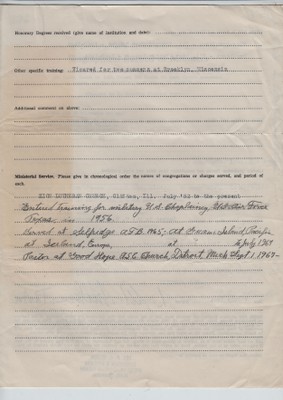 Honorary Degrees received (give name of institution and date):
Other specific training: Vicared for two summers at Brooklyn, Wisconsin
Additional comment on above:
Ministerial Service. Please give in chronological order the names of congregations or charges served, and period of
each.
ZION LUTHERAN CHURCH, Ill. July '53 to the present
Entered training for military U.S. Chaplaincy, Air Force
Texas, in 1956.
Served at Selfridge A.F.B. 1965, At Island, Pacific
at Iceland, Europe, at to July 1967
Pastor at Good Hope A.L.C. Church, Detroit Mich Sept 1, 1967-